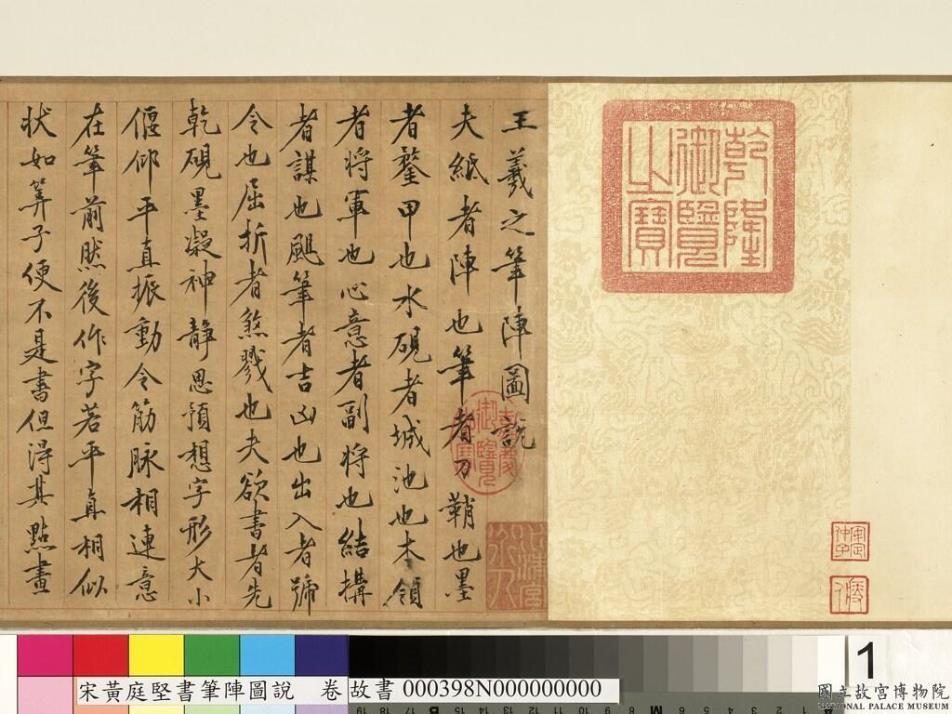 乾隆御覽之寶
王羲之筆陣圖說
夫紙者陣也筆者刀鞘也墨
者鍪甲也水硯者城池也本領
者將軍也心意者副將也結構
者謀也颺筆者吉凶也出入者號
令也屈折者煞戮也夫欲書者先
乾硯墨凝神靜思預想字形大小
偃仰平直振動令筋脉相連意
在筆前然後作字若平直相似
狀如筭子便不是書但得其點畫
宋黃庭堅書筆陣圖說 卷 故書 000398N000000000
1
國立故宮博物院
NATIONAL PALACE MUSEUM